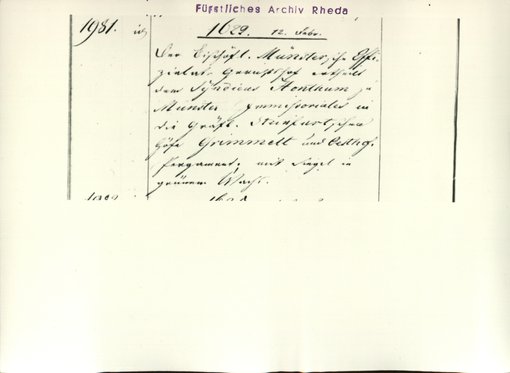 Fürstliches Archiv Rheda
1981.
1629. 12. Febr.
Der Bischöfl. Münstersche Offi-
zialat-Gerichtshof ertheilt
dem Syndicus Honthum zu
Münster immissoriales in
die Gräfl. Steinfurtschen
Höfe Grimmelt und
Pergament, mit Siegel in
grünem Wachs.